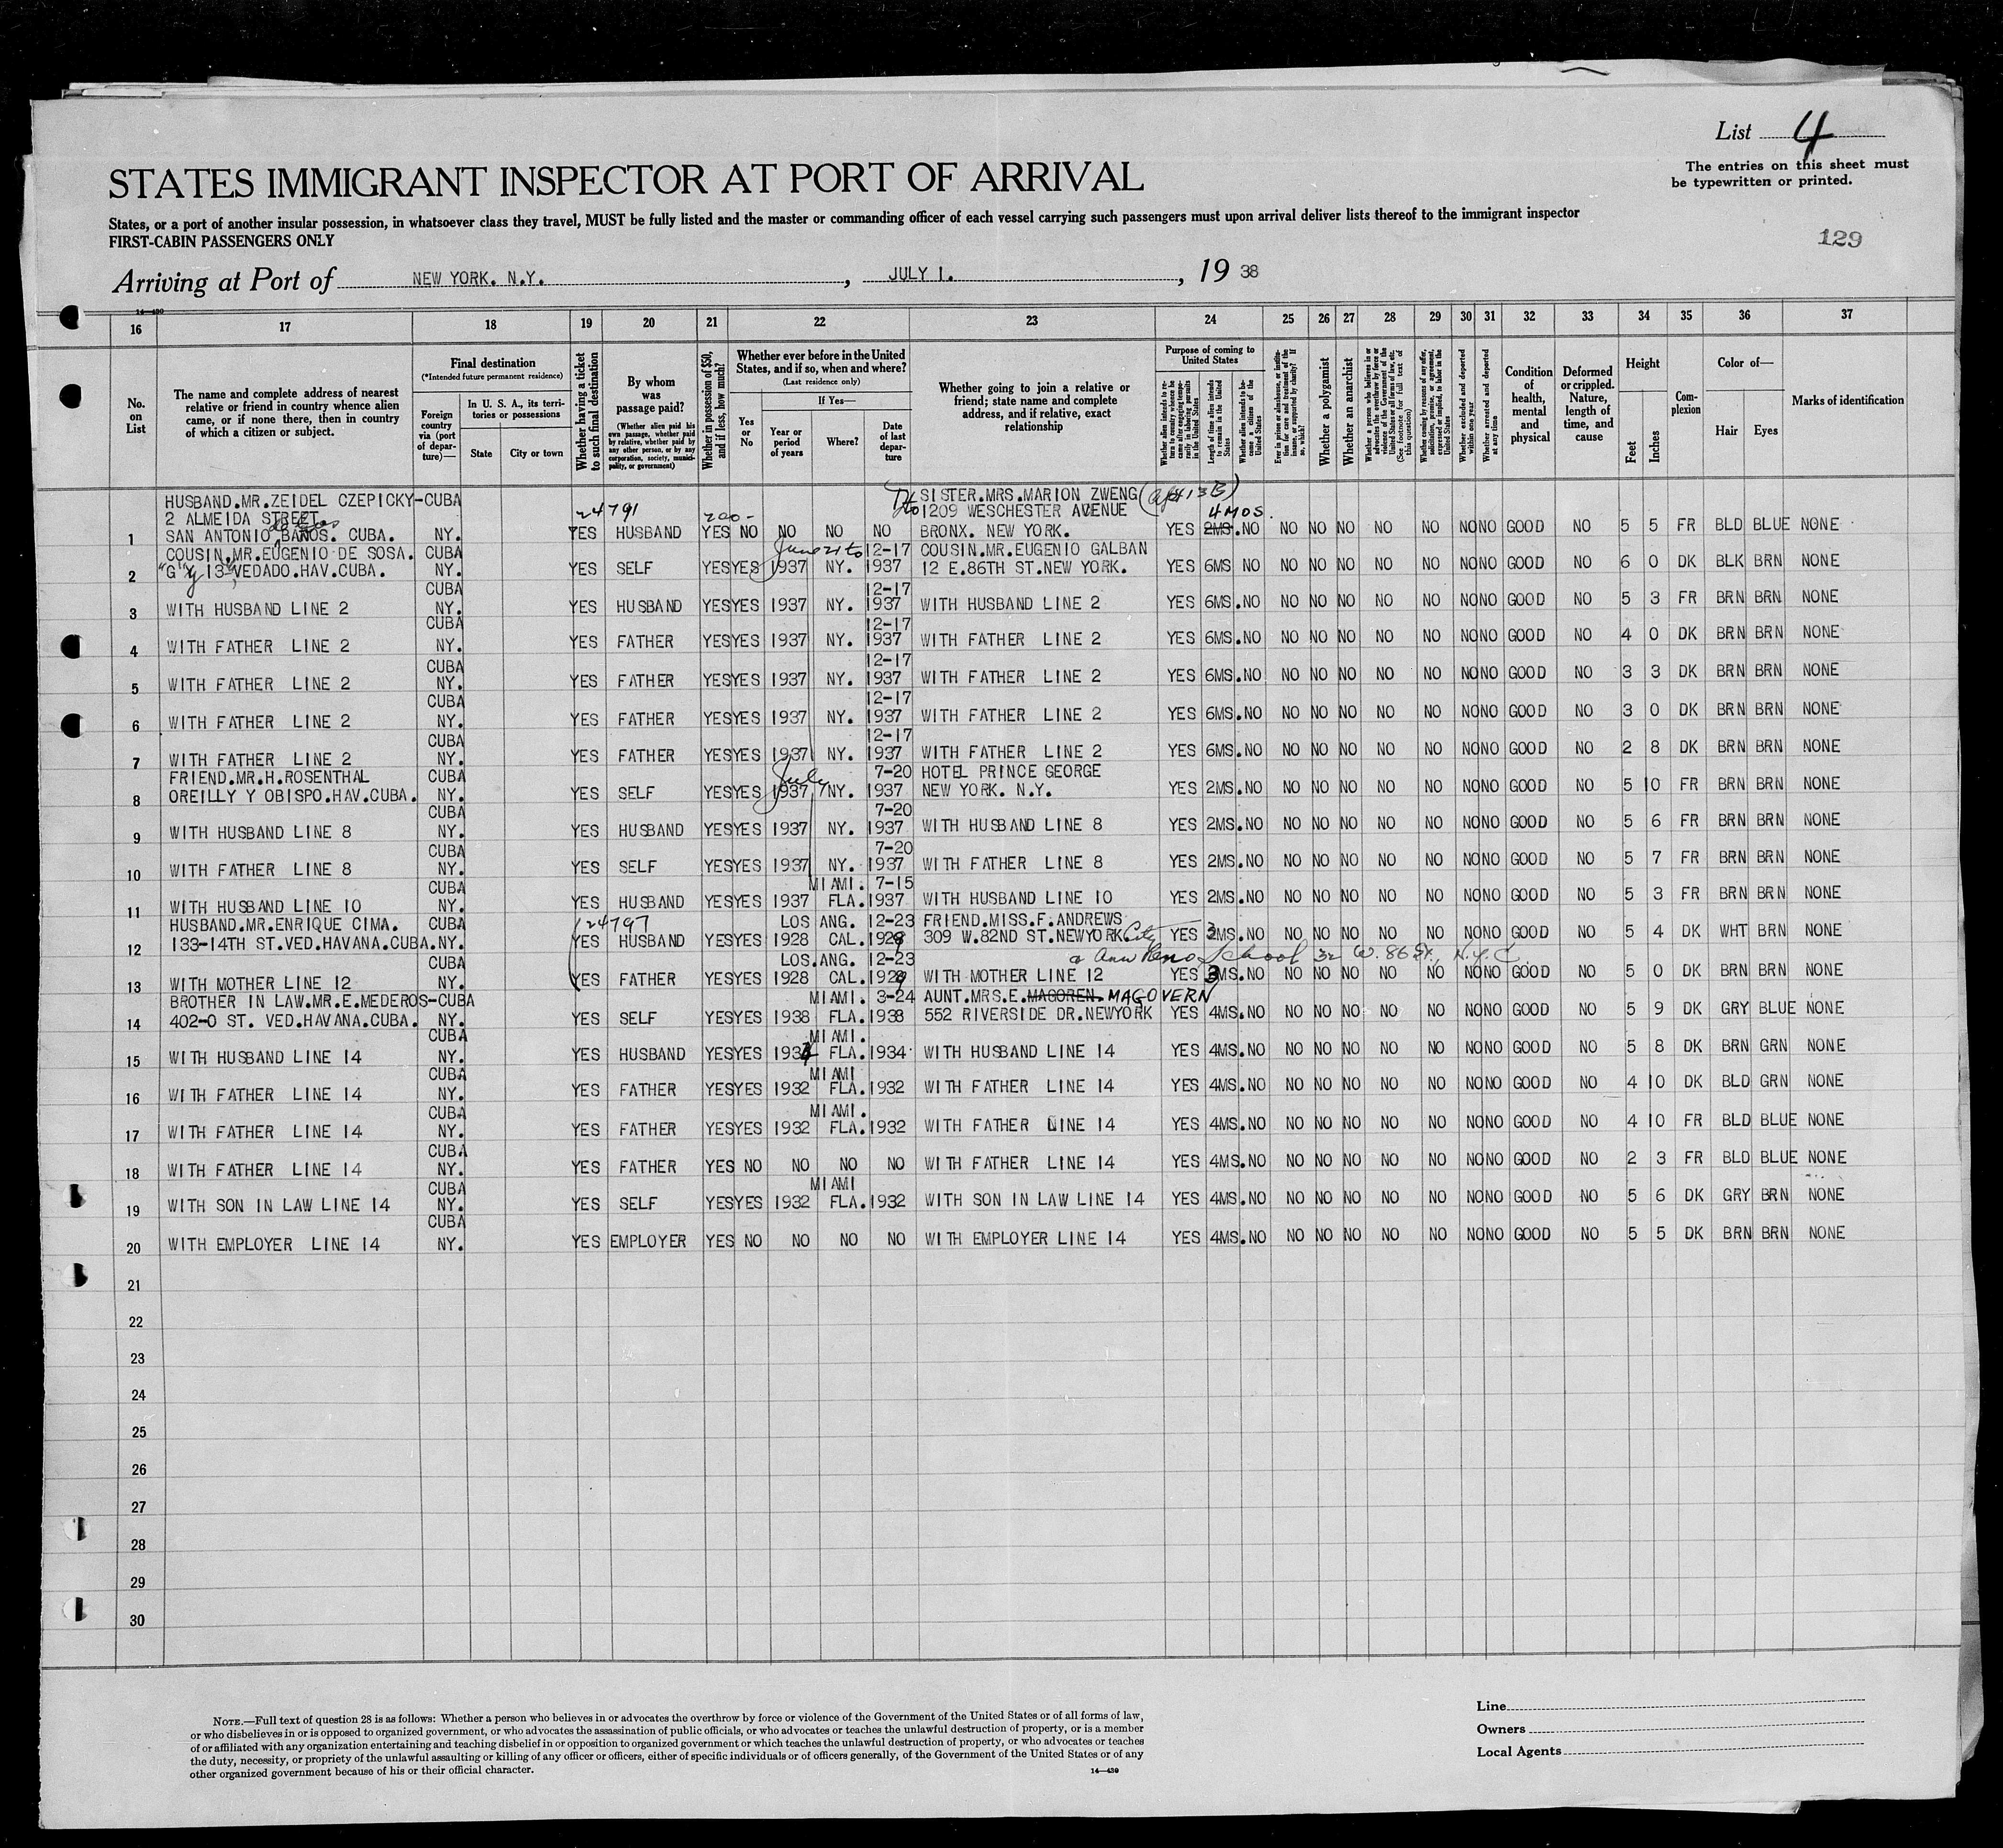 List 4
The entries on this sheet must
be typewritten or printed.
STATES IMMIGRANT INSPECTOR AT PORT OF ARRIVAL
States, or a port of another insular possession, in whatsoever class they travel, MUST be fully listed and the master or commanding officer of each vessel carrying such passengers must upon arrival deliver lists thereof to the immigrant inspector
FIRST-CABIN PASSENGERS ONLY
129
Arriving at Port of NEW YORK. N.Y. , JULY 1. , 19 38
14-430
16 17 18 19 20 21 22 23 24 25 26 27 28 29 30 31 32 33 34 35 36 37
No. on List
The name and complete address of nearest relative or friend in country whence alien came, or if none there, then in country of which a citizen or subject.
Final destination
(*Intended future permanent residence)
Foreign country via (port of departure)—
In U. S. A., its territories or possessions
State City or town
Whether having a ticket to such final destination
By whom was passage paid?
(Whether alien paid his own passage, whether paid by relative, whether paid by any other person, or by any corporation, society, municipality, or government)
Whether in possession of $50, and if less, how much?
Whether ever before in the United States, and if so, when and where?
(Last residence only)
Yes or No
If Yes—
Year or period of years
Where?
Date of last departure
Whether going to join a relative or friend; state name and complete address, and if relative, exact relationship
Purpose of coming to United States
Length of time alien intends to remain in the United States
Whether alien intends to become a citizen of the United States
Whether a polygamist
Whether an anarchist
Whether excluded and deported within one year
Whether arrested and deported at any time
Condition of health, mental and physical
Deformed or crippled. Nature, length of time, and cause
Height
Feet Inches
Complexion
Color of—
Hair Eyes
Marks of identification
HUSBAND.MR.ZEIDEL CZEPICKY-CUBA SISTER.MRS.MARION ZWENG
2 ALMEIDA STREET 24791 200- 1209 WESCHESTER AVENUE 4 MOS.
1 SAN ANTONIO de los BAÑOS. CUBA. NY. YES HUSBAND YES NO NO NO NO BRONX. NEW YORK. YES 2MS. NO NO NO NO NO NO NO NO GOOD NO 5 5 FR BLD BLUE NONE
COUSIN.MR.EUGENIO DE SOSA. CUBA June 21 to 12-17 COUSIN.MR.EUGENIO GALBAN
2 "G" y 13 VEDADO.HAV.CUBA. NY. YES SELF YES YES 1937 NY. 1937 12 E.86TH ST.NEW YORK. YES 6MS NO NO NO NO NO NO NO NO GOOD NO 6 0 DK BLK BRN NONE
CUBA 12-17
3 WITH HUSBAND LINE 2 NY. YES HUSBAND YES YES 1937 NY. 1937 WITH HUSBAND LINE 2 YES 6MS. NO NO NO NO NO NO NO NO GOOD NO 5 3 FR BRN BRN NONE
CUBA 12-17
4 WITH FATHER LINE 2 NY. YES FATHER YES YES 1937 NY. 1937 WITH FATHER LINE 2 YES 6MS. NO NO NO NO NO NO NO NO GOOD NO 4 0 DK BRN BRN NONE
CUBA 12-17
5 WITH FATHER LINE 2 NY. YES FATHER YES YES 1937 NY. 1937 WITH FATHER LINE 2 YES 6MS. NO NO NO NO NO NO NO NO GOOD NO 3 3 DK BRN BRN NONE
CUBA 12-17
6 WITH FATHER LINE 2 NY. YES FATHER YES YES 1937 NY. 1937 WITH FATHER LINE 2 YES 6MS. NO NO NO NO NO NO NO NO GOOD NO 3 0 DK BRN BRN NONE
CUBA 12-17
7 WITH FATHER LINE 2 NY. YES FATHER YES YES 1937 NY. 1937 WITH FATHER LINE 2 YES 6MS. NO NO NO NO NO NO NO NO GOOD NO 2 8 DK BRN BRN NONE
FRIEND.MR.H.ROSENTHAL CUBA July 7-20 HOTEL PRINCE GEORGE
8 OREILLY Y OBISPO.HAV.CUBA. NY. YES SELF YES YES 1937 NY. 1937 NEW YORK. N.Y. YES 2MS. NO NO NO NO NO NO NO NO GOOD NO 5 10 FR BRN BRN NONE
CUBA 7-20
9 WITH HUSBAND LINE 8 NY. YES HUSBAND YES YES 1937 NY. 1937 WITH HUSBAND LINE 8 YES 2MS. NO NO NO NO NO NO NO NO GOOD NO 5 6 FR BRN BRN NONE
CUBA 7-20
10 WITH FATHER LINE 8 NY. YES SELF YES YES 1937 NY. 1937 WITH FATHER LINE 8 YES 2MS. NO NO NO NO NO NO NO NO GOOD NO 5 7 FR BRN BRN NONE
CUBA MIAMI. 7-15
11 WITH HUSBAND LINE 10 NY. YES HUSBAND YES YES 1937 FLA. 1937 WITH HUSBAND LINE 10 YES 2MS. NO NO NO NO NO NO NO NO GOOD NO 5 3 FR BRN BRN NONE
HUSBAND.MR.ENRIQUE CIMA. CUBA 24797 LOS ANG. 12-23 FRIEND.MISS.F.ANDREWS
12 133-14TH ST.VED.HAVANA.CUBA. NY. YES HUSBAND YES YES 1928 CAL. 1929 309 W.82ND ST.NEWYORK. City YES 3MS. NO NO NO NO NO NO NO NO GOOD NO 5 4 DK WHT BRN NONE
CUBA LOS.ANG. 12-23 Ann Reno School 32 W. 86 St., N.Y.C.
13 WITH MOTHER LINE 12 NY. YES FATHER YES YES 1928 CAL. 1929 WITH MOTHER LINE 12 YES 3MS. NO NO NO NO NO NO NO NO GOOD NO 5 0 DK BRN BRN NONE
BROTHER IN LAW.MR.E.MEDEROS-CUBA MIAMI. 3-24 AUNT.MRS.E.MAGOREN. MAGOVERN
14 402-O ST. VED.HAVANA.CUBA. NY. YES SELF YES YES 1938 FLA. 1938 552 RIVERSIDE DR.NEWYORK YES 4MS. NO NO NO NO NO NO NO NO GOOD NO 5 9 DK GRY BLUE NONE
CUBA MIAMI.
15 WITH HUSBAND LINE 14 NY. YES HUSBAND YES YES 1934 FLA. 1934 WITH HUSBAND LINE 14 YES 4MS. NO NO NO NO NO NO NO NO GOOD NO 5 8 DK BRN GRN NONE
CUBA MIAMI
16 WITH FATHER LINE 14 NY. YES FATHER YES YES 1932 FLA. 1932 WITH FATHER LINE 14 YES 4MS. NO NO NO NO NO NO NO NO GOOD NO 4 10 DK BLD GRN NONE
CUBA MIAMI.
17 WITH FATHER LINE 14 NY. YES FATHER YES YES 1932 FLA. 1932 WITH FATHER LINE 14 YES 4MS. NO NO NO NO NO NO NO NO GOOD NO 4 10 FR BLD BLUE NONE
CUBA
18 WITH FATHER LINE 14 NY. YES FATHER YES NO NO NO NO WITH FATHER LINE 14 YES 4MS. NO NO NO NO NO NO NO NO GOOD NO 2 3 FR BLD BLUE NONE
CUBA MIAMI
19 WITH SON IN LAW LINE 14 NY. YES SELF YES YES 1932 FLA. 1932 WITH SON IN LAW LINE 14 YES 4MS. NO NO NO NO NO NO NO NO GOOD NO 5 6 DK GRY BRN NONE
CUBA
20 WITH EMPLOYER LINE 14 NY. YES EMPLOYER YES NO NO NO NO WITH EMPLOYER LINE 14 YES 4MS. NO NO NO NO NO NO NO NO GOOD NO 5 5 DK BRN BRN NONE
21
22
23
24
25
26
27
28
29
30
NOTE.—Full text of question 28 is as follows: Whether a person who believes in or advocates the overthrow by force or violence of the Government of the United States or of all forms of law,
or who disbelieves in or is opposed to organized government, or who advocates the assassination of public officials, or who advocates or teaches the unlawful destruction of property, or is a member
of or affiliated with any organization entertaining and teaching disbelief in or opposition to organized government or which teaches the unlawful destruction of property, or who advocates or teaches
the duty, necessity, or propriety of the unlawful assaulting or killing of any officer or officers, either of specific individuals or of officers generally, of the Government of the United States or of any
other organized government because of his or their official character.
14—430
Line
Owners
Local Agents